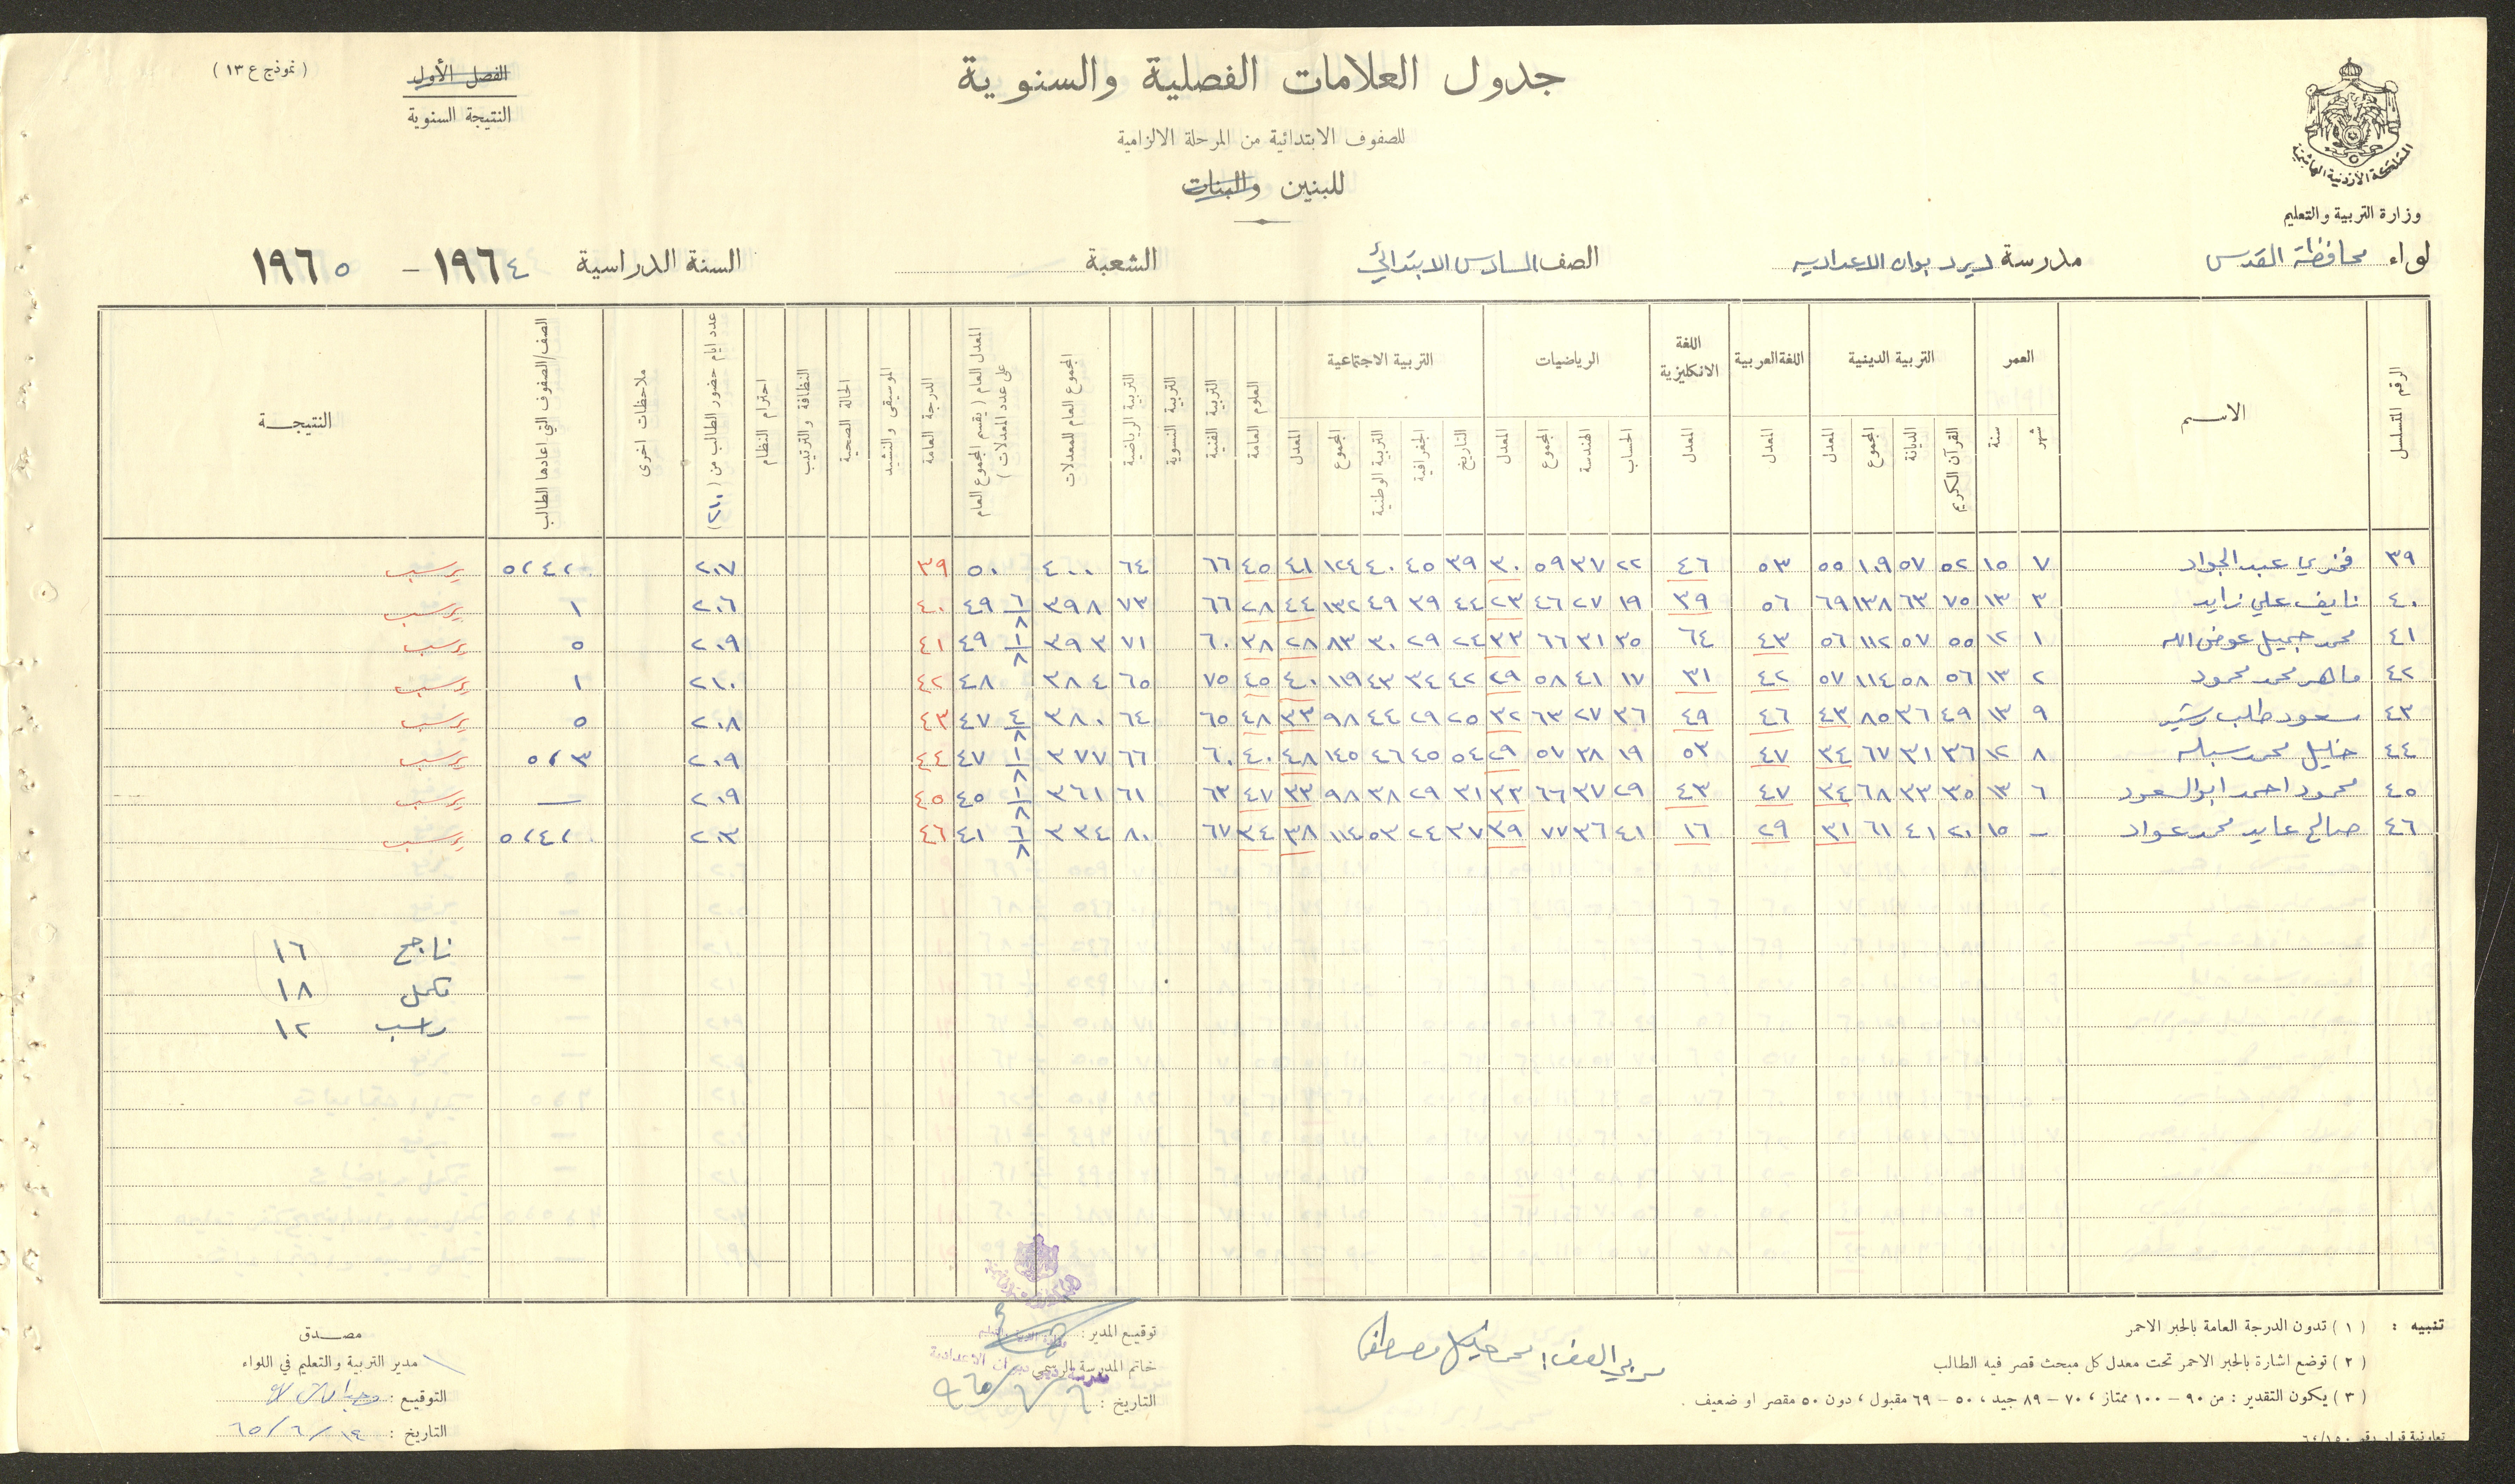 جدول العلامات الفصلية والسنوية
للصفوف الابتدائية من المرحلة الالزامية
للبنين والبنات
الفصل الأول
النتيجة السنوية
( نموذج ع ١٣ )
المملكة الأردنية الهاشمية
وزارة التربية والتعليم
لواء محافظة القدس مدرسة ديردبوان الاعداديه الصف السادس الابتدائي الشعبة السنة الدراسية ١٩٦٤ - ١٩٦٥
الرقم المتسلسل الاسم العمر التربية الدينية اللغة العربية اللغة الانكليزية الرياضيات التربية الاجتماعية العلوم العامة التربية الفنية التربية النسوية التربية الرياضية المجموع العام للمعدلات المعدل العام ( يقسم المجموع العام على عدد المعدلات ) الدرجة العامة الموسيقى والنشيد الحالة الصحية النظافة والترتيب احترام النظام عدد ايام حضور الطالب من ( ٢١٠ ) ملاحظات اخرى الصف/الصفوف التي اعادها الطالب النتيجــة
شهر سنة القرآن الكريم الديانة المجموع المعدل المعدل المعدل الحساب الهندسة المجموع المعدل التاريخ الجغرافية التربية الوطنية المجموع المعدل
٣٩ فخري عبد الجواد ٧ ١٥ ٥٢ ٥٧ ١٠٩ ٥٥ ٥٣ ٤٦ ٢٢ ٣٧ ٥٩ ٣٠ ٣٩ ٤٥ ٤٠ ١٢٤ ٤١ ٤٥ ٦٦ ٦٤ ٤٠٠ ٥٠ ٣٩ ٢٠٧ ٥،٤،٢ يرسب
٤٠ نايف علي زايد ٣ ١٣ ٧٥ ٦٣ ١٣٨ ٦٩ ٥٦ ٣٩ ١٩ ٢٧ ٤٦ ٢٣ ٤٤ ٣٩ ٤٩ ١٣٢ ٤٤ ٢٨ ٦٦ ٧٣ ٣٩٨ ٦/٨ ٤٩ ٤٠ ٢٠٦ ١ يرسب
٤١ محمد جميل عوض الله ١ ١٢ ٥٥ ٥٧ ١١٢ ٥٦ ٤٣ ٦٤ ٣٥ ٣١ ٦٦ ٣٣ ٢٤ ٢٩ ٣٠ ٨٣ ٢٨ ٣٨ ٦٠ ٧١ ٣٩٣ ١/٨ ٤٩ ٤١ ٢٠٩ ٥ يرسب
٤٢ ماهر محمد محمود ٢ ١٣ ٥٦ ٥٨ ١١٤ ٥٧ ٤٢ ٣١ ١٧ ٤١ ٥٨ ٢٩ ٤٢ ٣٤ ٤٣ ١١٩ ٤٠ ٤٥ ٧٥ ٦٥ ٣٨٤ ٤٨ ٤٢ ٢١٠ ١ يرسب
٤٣ سعود طلب رشيد ٩ ١٣ ٤٩ ٣٦ ٨٥ ٤٣ ٤٦ ٤٩ ٣٦ ٢٧ ٦٣ ٣٢ ٢٥ ٢٩ ٤٤ ٩٨ ٣٣ ٤٨ ٦٥ ٦٤ ٣٨٠ ٤/٨ ٤٧ ٤٣ ٢٠٨ ٥ يرسب
٤٤ خليل محمد ٨ ١٢ ٣٦ ٣١ ٦٧ ٣٤ ٤٧ ٥٣ ١٩ ٣٨ ٥٧ ٢٩ ٥٤ ٤٥ ٤٦ ١٤٥ ٤٨ ٤٠ ٦٠ ٦٦ ٣٧٧ ١/٨ ٤٧ ٤٤ ٢٠٩ ٥،٣ يرسب
٤٥ محمود احمد ابو السعود ٦ ١٣ ٣٥ ٣٣ ٦٨ ٣٤ ٤٧ ٤٣ ٢٩ ٣٧ ٦٦ ٣٣ ٣١ ٢٩ ٣٨ ٩٨ ٣٣ ٤٧ ٦٣ ٦١ ٣٦١ ١/٨ ٤٥ ٤٥ ٢٠٩ — يرسب
٤٦ صالح عايد محمد عواد - ١٥ ٢٠ ٤١ ٦١ ٣١ ٢٩ ١٦ ٤١ ٣٦ ٧٧ ٣٩ ٣٧ ٢٤ ٥٣ ١١٤ ٣٨ ٣٤ ٦٧ ٨٠ ٣٣٤ ٦/٨ ٤١ ٤٦ ٢٠٣ ٥،٤،٢ يرسب
ناجح ١٦
مكمل ١٨
راسب ١٢
تنبيه : ( ١ ) تدون الدرجة العامة بالحبر الاحمر
( ٢ ) توضع اشارة بالحبر الاحمر تحت معدل كل مبحث قصر فيه الطالب
( ٣ ) يكون التقدير : من ٩٠ - ١٠٠ ممتاز ، ٧٠ - ٨٩ جيد ، ٥٠ - ٦٩ مقبول ، دون ٥٠ مقصر او ضعيف .
مربي الصف : محمد خليل مصطفى
توقيع المدير :
خاتم المدرسة الرسمي
التاريخ : ٦/٦/٩٦٥
مصــدق
مدير التربية والتعليم في اللواء
التوقيع :
التاريخ : ١٤/٦/٦٥